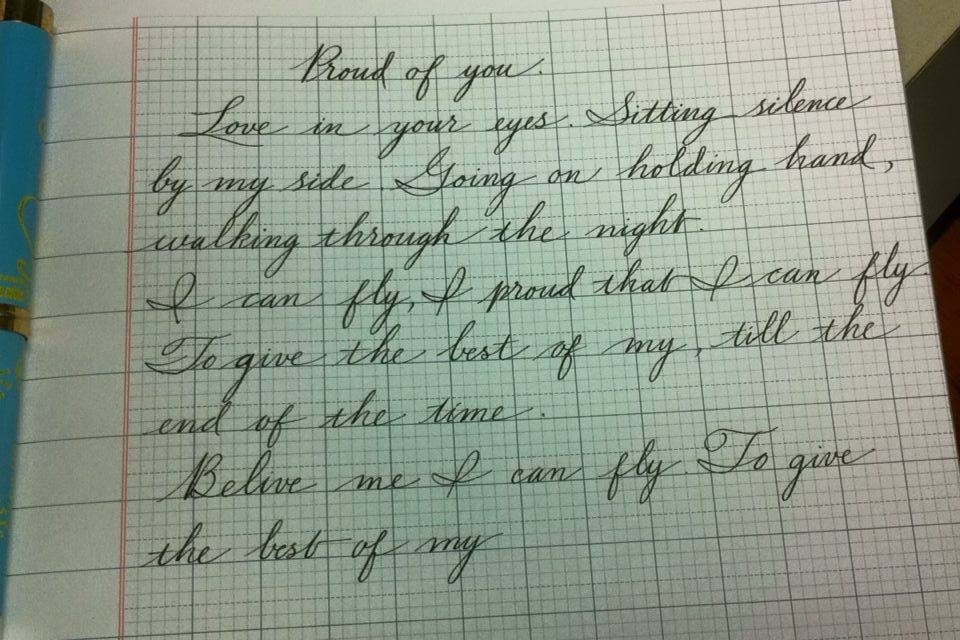 Proud of you.
Love in your eyes. Sitting silence
by my side. Going on holding hand,
walking through the night.
I can fly, I proud that I can fly.
To give the best of my, till the
end of the time.
Belive me I can fly To give
the best of my